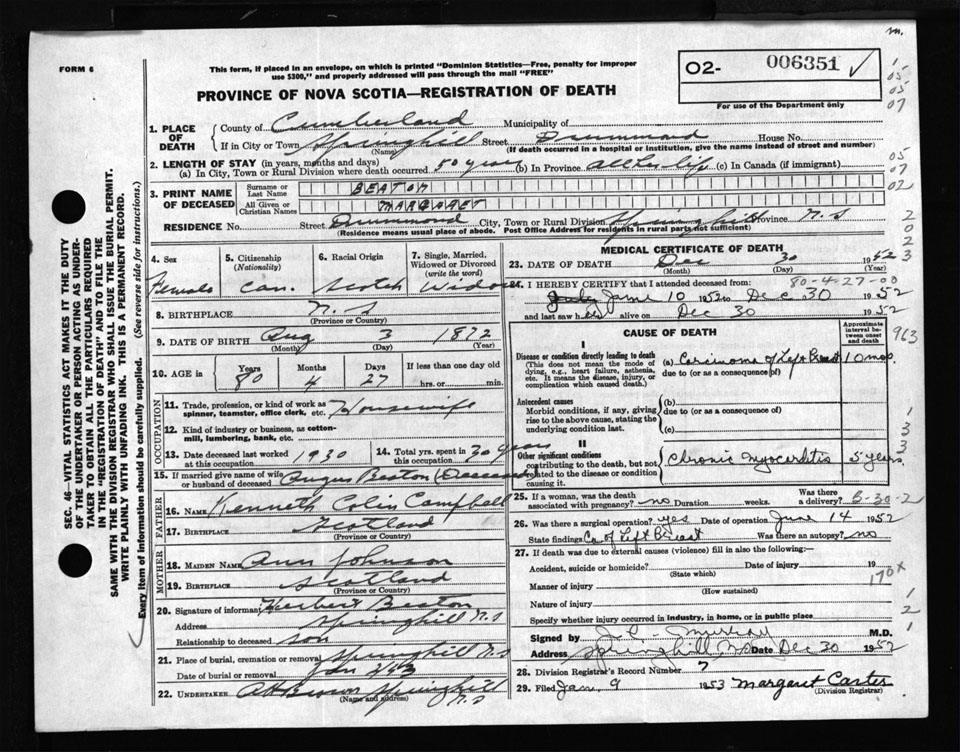 m.
FORM 6
This form, if placed in an envelope, on which is printed "Dominion Statistics—Free, penalty for improper
use $300," and properly addressed will pass through the mail "FREE"
PROVINCE OF NOVA SCOTIA—REGISTRATION OF DEATH
O2- 006351 ✓
For use of the Department only
1. PLACE OF DEATH
County of Cumberland Municipality of
If in City or Town Springhill Street Drummond House No.
(Name) (If death occurred in a hospital or institution, give the name instead of street and number)
2. LENGTH OF STAY (in years, months and days)
(a) In City, Town or Rural Division where death occurred 50 years (b) In Province all her life (c) In Canada (if immigrant)
3. PRINT NAME OF DECEASED
Surname or Last Name BEATON
All Given or Christian Names MARGARET
RESIDENCE No. Street Drummond City, Town or Rural Division Springhill Province N.S
(Residence means usual place of abode. Post Office Address for residents in rural parts not sufficient)
4. Sex Female
5. Citizenship (Nationality) Can.
6. Racial Origin Scotch
7. Single, Married, Widowed or Divorced (write the word) Widow
8. BIRTHPLACE N.S
(Province or Country)
9. DATE OF BIRTH Aug 3 1872
(Month) (Day) (Year)
10. AGE in Years 80 Months 4 Days 27 If less than one day old hrs. or min.
OCCUPATION
11. Trade, profession, or kind of work as spinner, teamster, office clerk, etc. Housewife
12. Kind of industry or business, as cotton-mill, lumbering, bank, etc.
13. Date deceased last worked at this occupation 1930
14. Total yrs. spent in this occupation 30 years
15. If married give name of wife or husband of deceased Angus Beaton (Deceased)
FATHER
16. NAME Kenneth Colin Campbell
17. BIRTHPLACE Scotland
(Province or Country)
MOTHER
18. MAIDEN NAME Ann Johnson
19. BIRTHPLACE Scotland
(Province or Country)
20. Signature of informant Herbert Beaton
Address Springhill N.S
Relationship to deceased son
21. Place of burial, cremation or removal Springhill N.S
Date of burial or removal Jan 2/53
22. UNDERTAKER AH Brown Springhill N.S
(Name and address)
MEDICAL CERTIFICATE OF DEATH
23. DATE OF DEATH Dec 30 1952
(Month) (Day) (Year)
80-4-27-00
24. I HEREBY CERTIFY that I attended deceased from:
June 10 1952 to Dec 30 1952
and last saw her alive on Dec 30 1952
CAUSE OF DEATH
Approximate interval between onset and death
I
Disease or condition directly leading to death
(This does not mean the mode of dying, e.g., heart failure, asthenia, etc. It means the disease, injury, or complication which caused death.)
(a) Carcinoma of Left Breast 10 mos.
due to (or as a consequence of)
Antecedent causes
Morbid conditions, if any, giving rise to the above cause, stating the underlying condition last.
(b)
due to (or as a consequence of)
(c)
II
Other significant conditions
contributing to the death, but not related to the disease or condition causing it.
Chronic Myocarditis 5 years
25. If a woman, was the death associated with pregnancy? no Duration weeks. Was there a delivery? B-30-2
26. Was there a surgical operation? yes Date of operation June 14 1952
State findings Ca of Left Breast Was there an autopsy? no
27. If death was due to external causes (violence) fill in also the following:—
Accident, suicide or homicide? Date of injury 19
(State which)
170x
Manner of injury
(How sustained)
Nature of injury
Specify whether injury occurred in industry, in home, or in public place
Signed by J. C. Murray M.D.
Address Springhill NS Date Dec 30 1952
28. Division Registrar's Record Number 7
29. Filed Jan. 9 1953 Margaret Carter
(Division Registrar)
SEC. 46—VITAL STATISTICS ACT MAKES IT THE DUTY
OF THE UNDERTAKER OR PERSON ACTING AS UNDER-
TAKER TO OBTAIN ALL THE PARTICULARS REQUIRED
IN THE "REGISTRATION OF DEATH" AND TO FILE THE
SAME WITH THE DIVISION REGISTRAR WHO SHALL ISSUE THE BURIAL PERMIT.
WRITE PLAINLY WITH UNFADING INK. THIS IS A PERMANENT RECORD.
Every item of information should be carefully supplied. (See reverse side for instructions.)
1
05
05
07
05
07
02
2
0
2
3
963
3
3
1
2
1